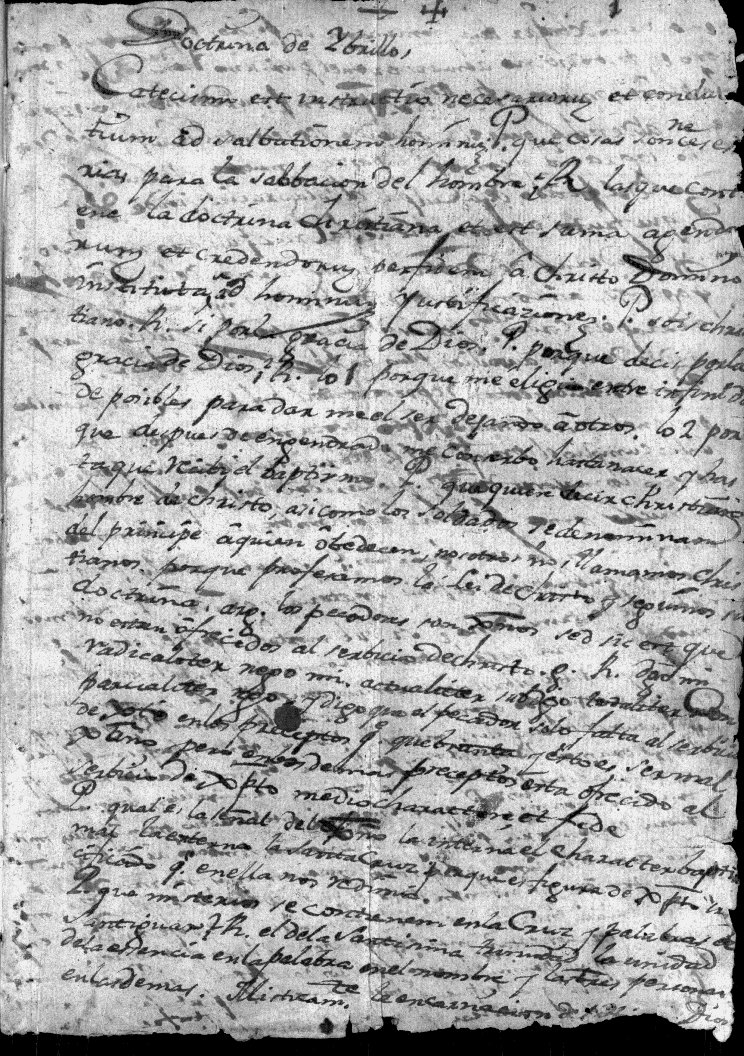 + 1
Doctrina de Ybrillos
Catecismo est instructio necesariorum et condu
tium ad salbationem hominis. P. que cosas son nece
rias para la salbacion del hombre? R. las que conti
ene la doctrina christiana et est suma agendo
rum et credendorum perfidem a Christo Domino
instituta ad hominis Justificaziones. P. sois chris
tiano. R. si por la gracia de Dios. P. porque decis por la
gracia de Dios? R. lo 1 porque me eligio entre infini d
de posibles para dar me el ser dejando a otros. lo 2 por
que despues de engendrado me conserbo hasta nacer y has
ta que recibi el baptismo. P. que quiere decir christiano
hombre de christo, asi como los soldados se denominan
del principe a quien obedecen, nosotros nos llamamos chris
tianos porque profesamos la lei de christo y seguimos su
doctrina. arg. los pecadores son xpnos sed sic est que
no estan ofrecidos al serbicio de christo. g. R. dad mi
radicaliter nego mi. actualiter subdgo totaliter nego
parcialiter nego y digo que el pecador solo falta al serbicio
de xpto en los preceptos q quebranta y esto es ser mal
xptiano pero en los demas preceptos esta ofrecido al
serbicio de Xpto medio charactere et fide
P. qual es la señal del xptno la interna el character baptis
mal la externa la santa Cruz porque es figura de Xpto cru
cificado q. en ella nos redimio.
P. que misterios se contienen en la Cruz y palabras de
Santiguar? R. el de la Santisima trinidad la unidad
de la esencia en la palabra en el nombre y las tres personas
en las demas. Ilistram.te la encarnacion de Dios